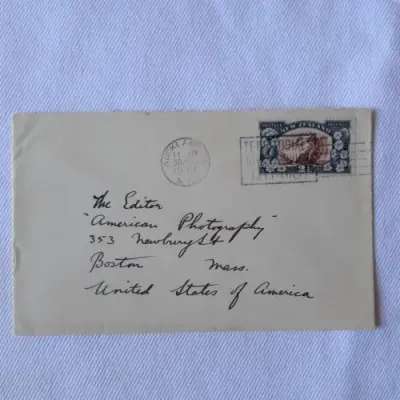 NEW ZEALAND
The Editor
"American Photography"
353 Newbury St
Boston Mass.
United States of America